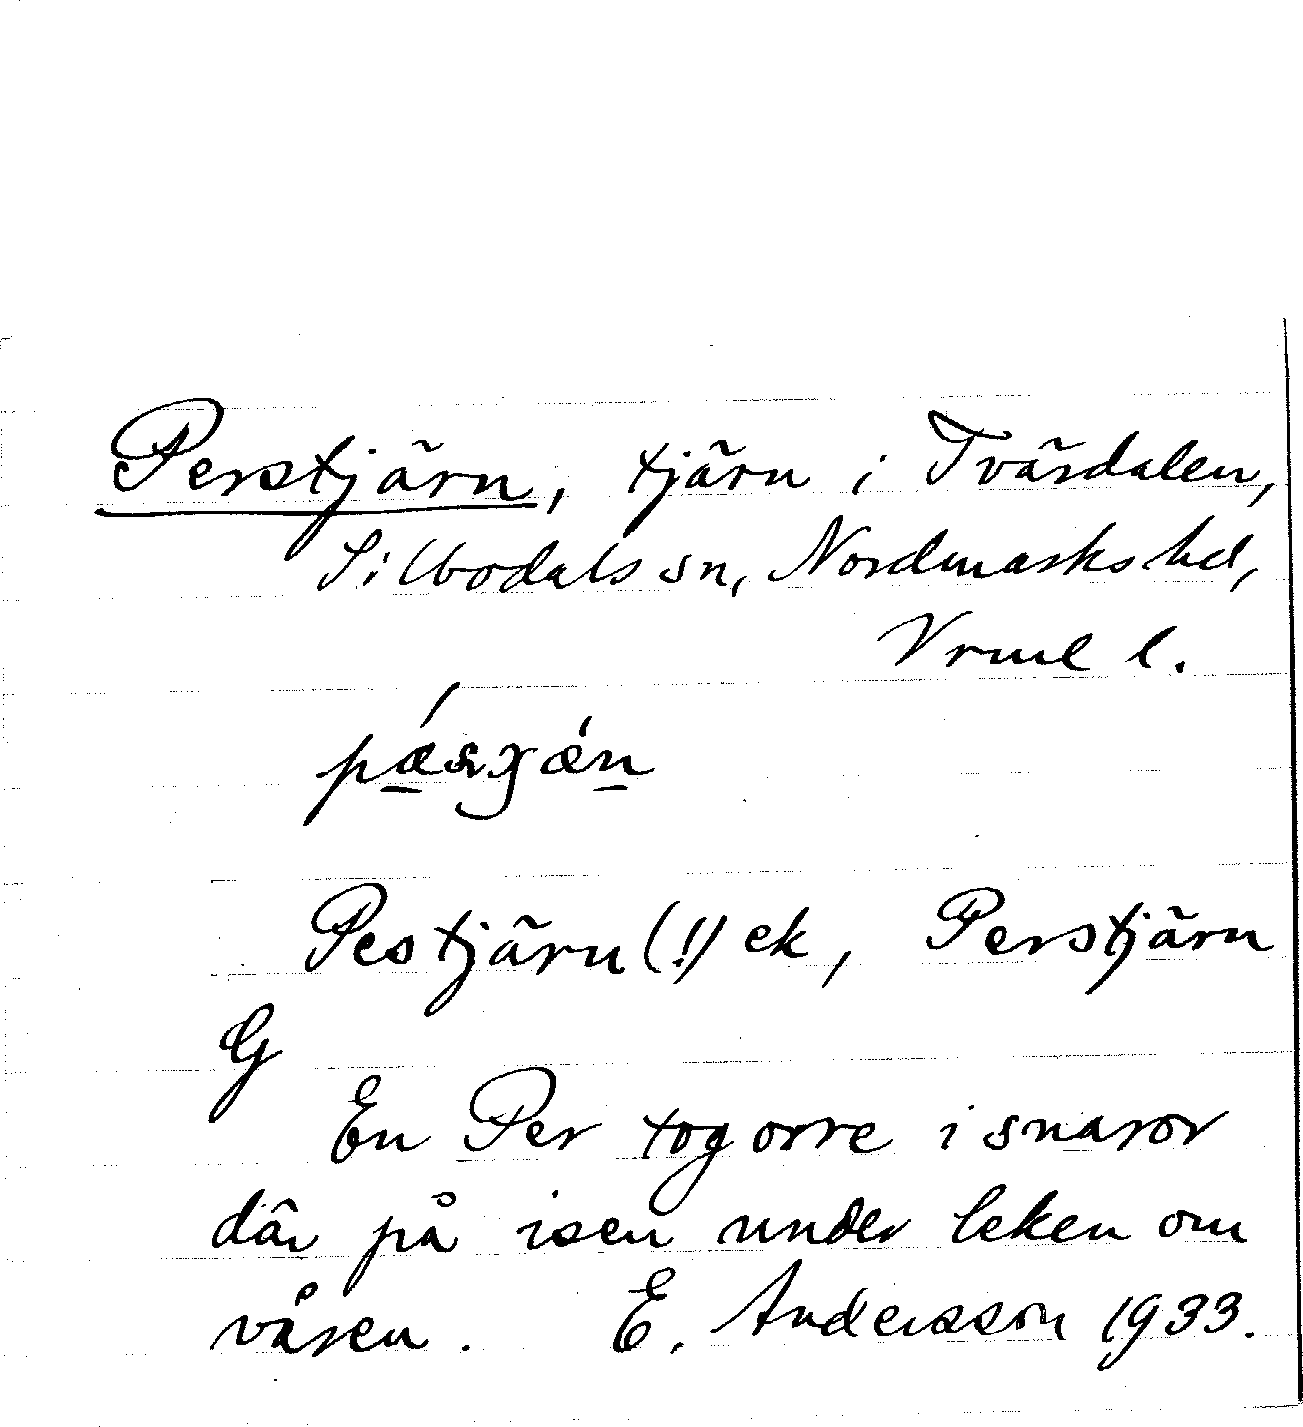 Perstjärn, tjärn i Tvärdalen,
Silbodals sn, Nordmarks hd,
Vrml l.
Pestjärn(!) ek, Perstjärn
G
En Per tog orre i snaror
där på isen under leken om
våren. E. Andersson 1933.